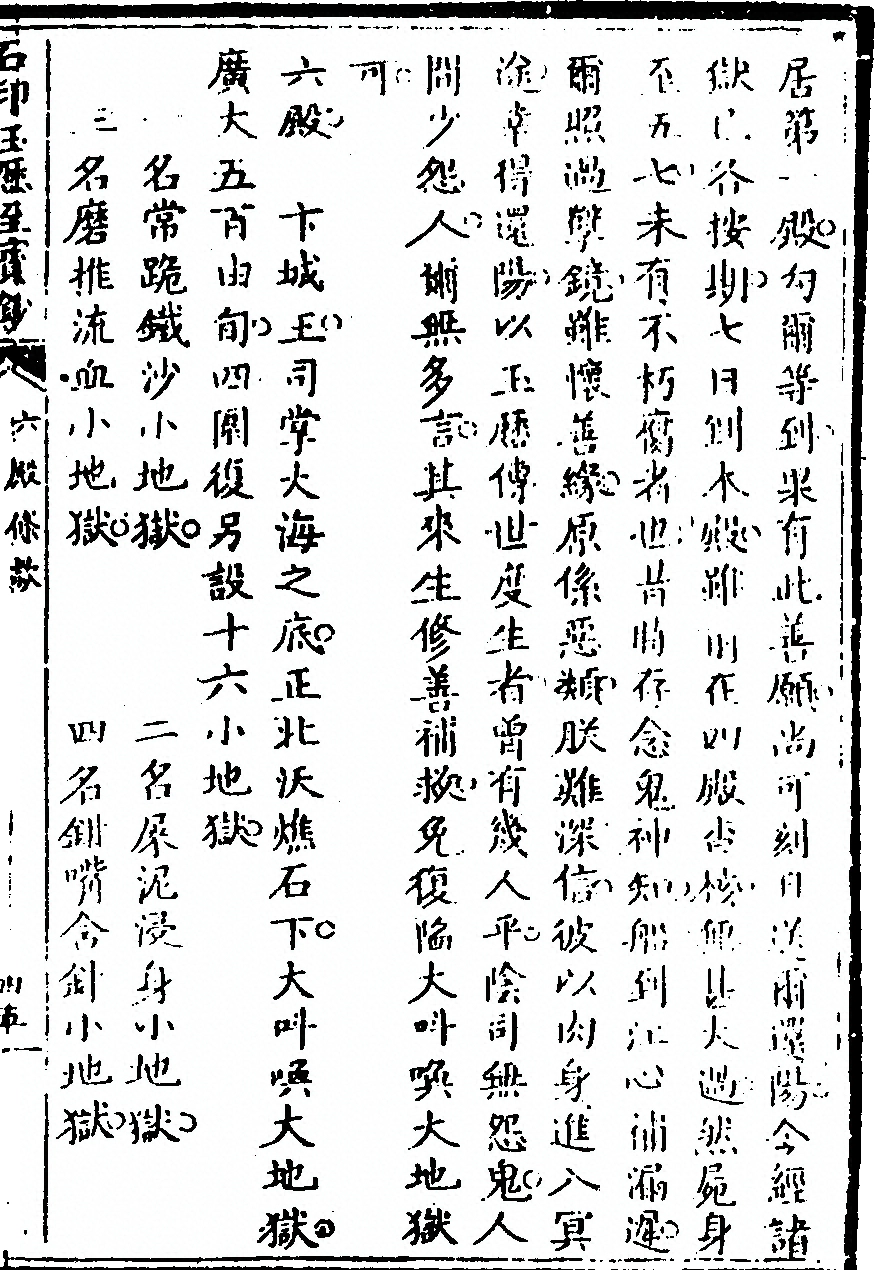 居第一殿。勾爾等到。果有此善願。尚可刻日送爾還陽。今經諸
獄。已各按期。七日到本殿。雖則在四殿查核。無甚大過。然屍身
不五七。未有不朽腐者也。昔時存念鬼神知。船到江心補漏遲。
爾照過孽鏡。雖懷善緣。原係惡類。朕難深信。彼以肉身進入冥
途。幸得還陽。以玉歷傳世度生者。曾有幾人乎。陰司無怨鬼。人
間少怨人。爾無多言。其來生修善補救。免復陷大叫喚大地獄
可。
六殿。卞城王。司掌大海之底。正北沃燋石下。大叫喚大地獄。
廣大五百由旬。四圍復另設十六小地獄。
一名常跪鐵沙小地獄。二名屎泥浸身小地獄。
三名磨推流血小地獄。四名鉗嘴含針小地獄。
石印玉歷至寶鈔 六殿條款